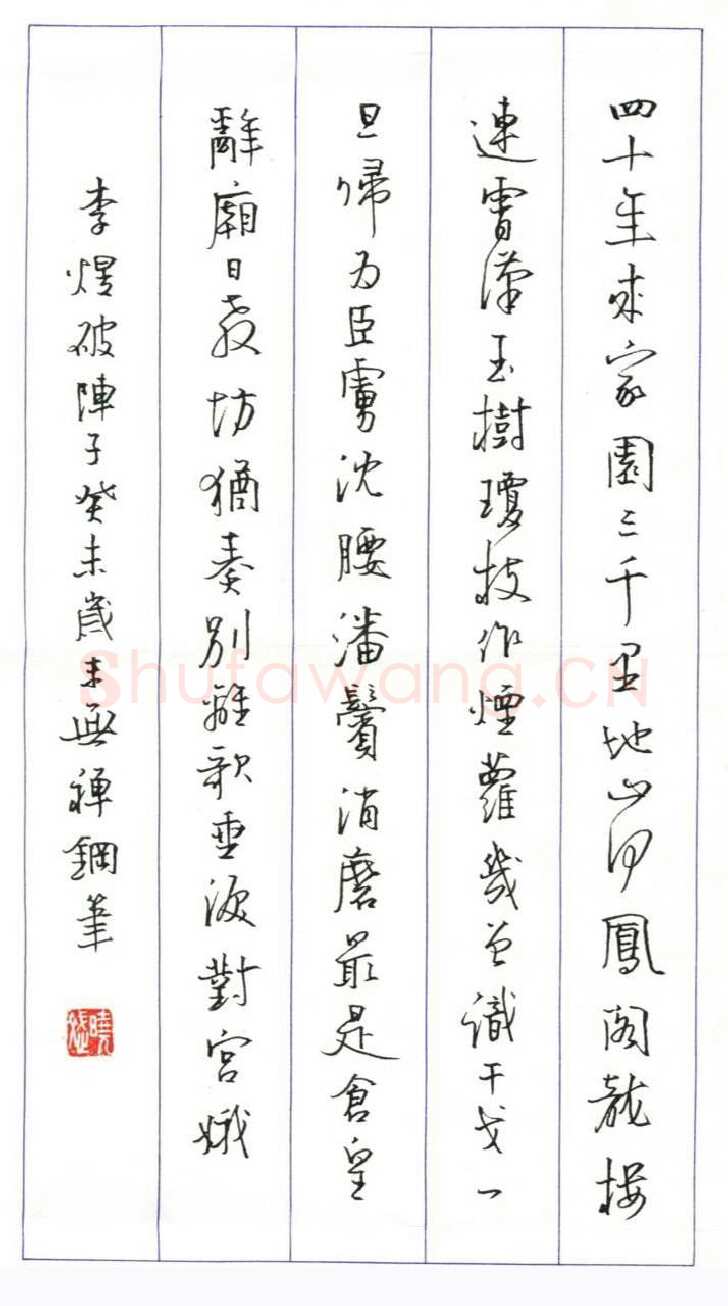 四十年來家園三千里地山河鳳閣龍樓
連霄漢玉樹瓊枝作煙蘿幾曾識干戈一
旦歸為臣虜沈腰潘鬢消磨最是倉皇
辭廟日教坊猶奏別離歌垂淚對宮娥
李煜破陣子癸未歲末無禪鋼筆
Shufawang.CN